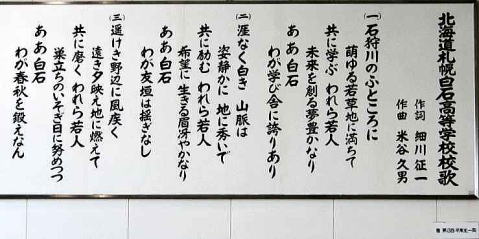 北海道札幌白石高等学校校歌
作詞 細川征一
作曲 米谷久男
(一)石狩川のふところに
萌ゆる若草地に満ちて
共に学ぶ われら若人
未来を創る夢豊かなり
ああ白石
わが学び舎に誇りあり
(二)涯なく白き 山脈は
姿静かに 地に秀いで
共に励む われら若人
希望に生きる眉冴やかなり
ああ白石
わが友垣は揺ぎなし
(三)遥けき野辺に風疾く
遠き夕映え地に燃えて
共に磨く われら若人
巣立ちのいそぎ日に努めつつ
ああ白石
わが春秋を鍛えなん